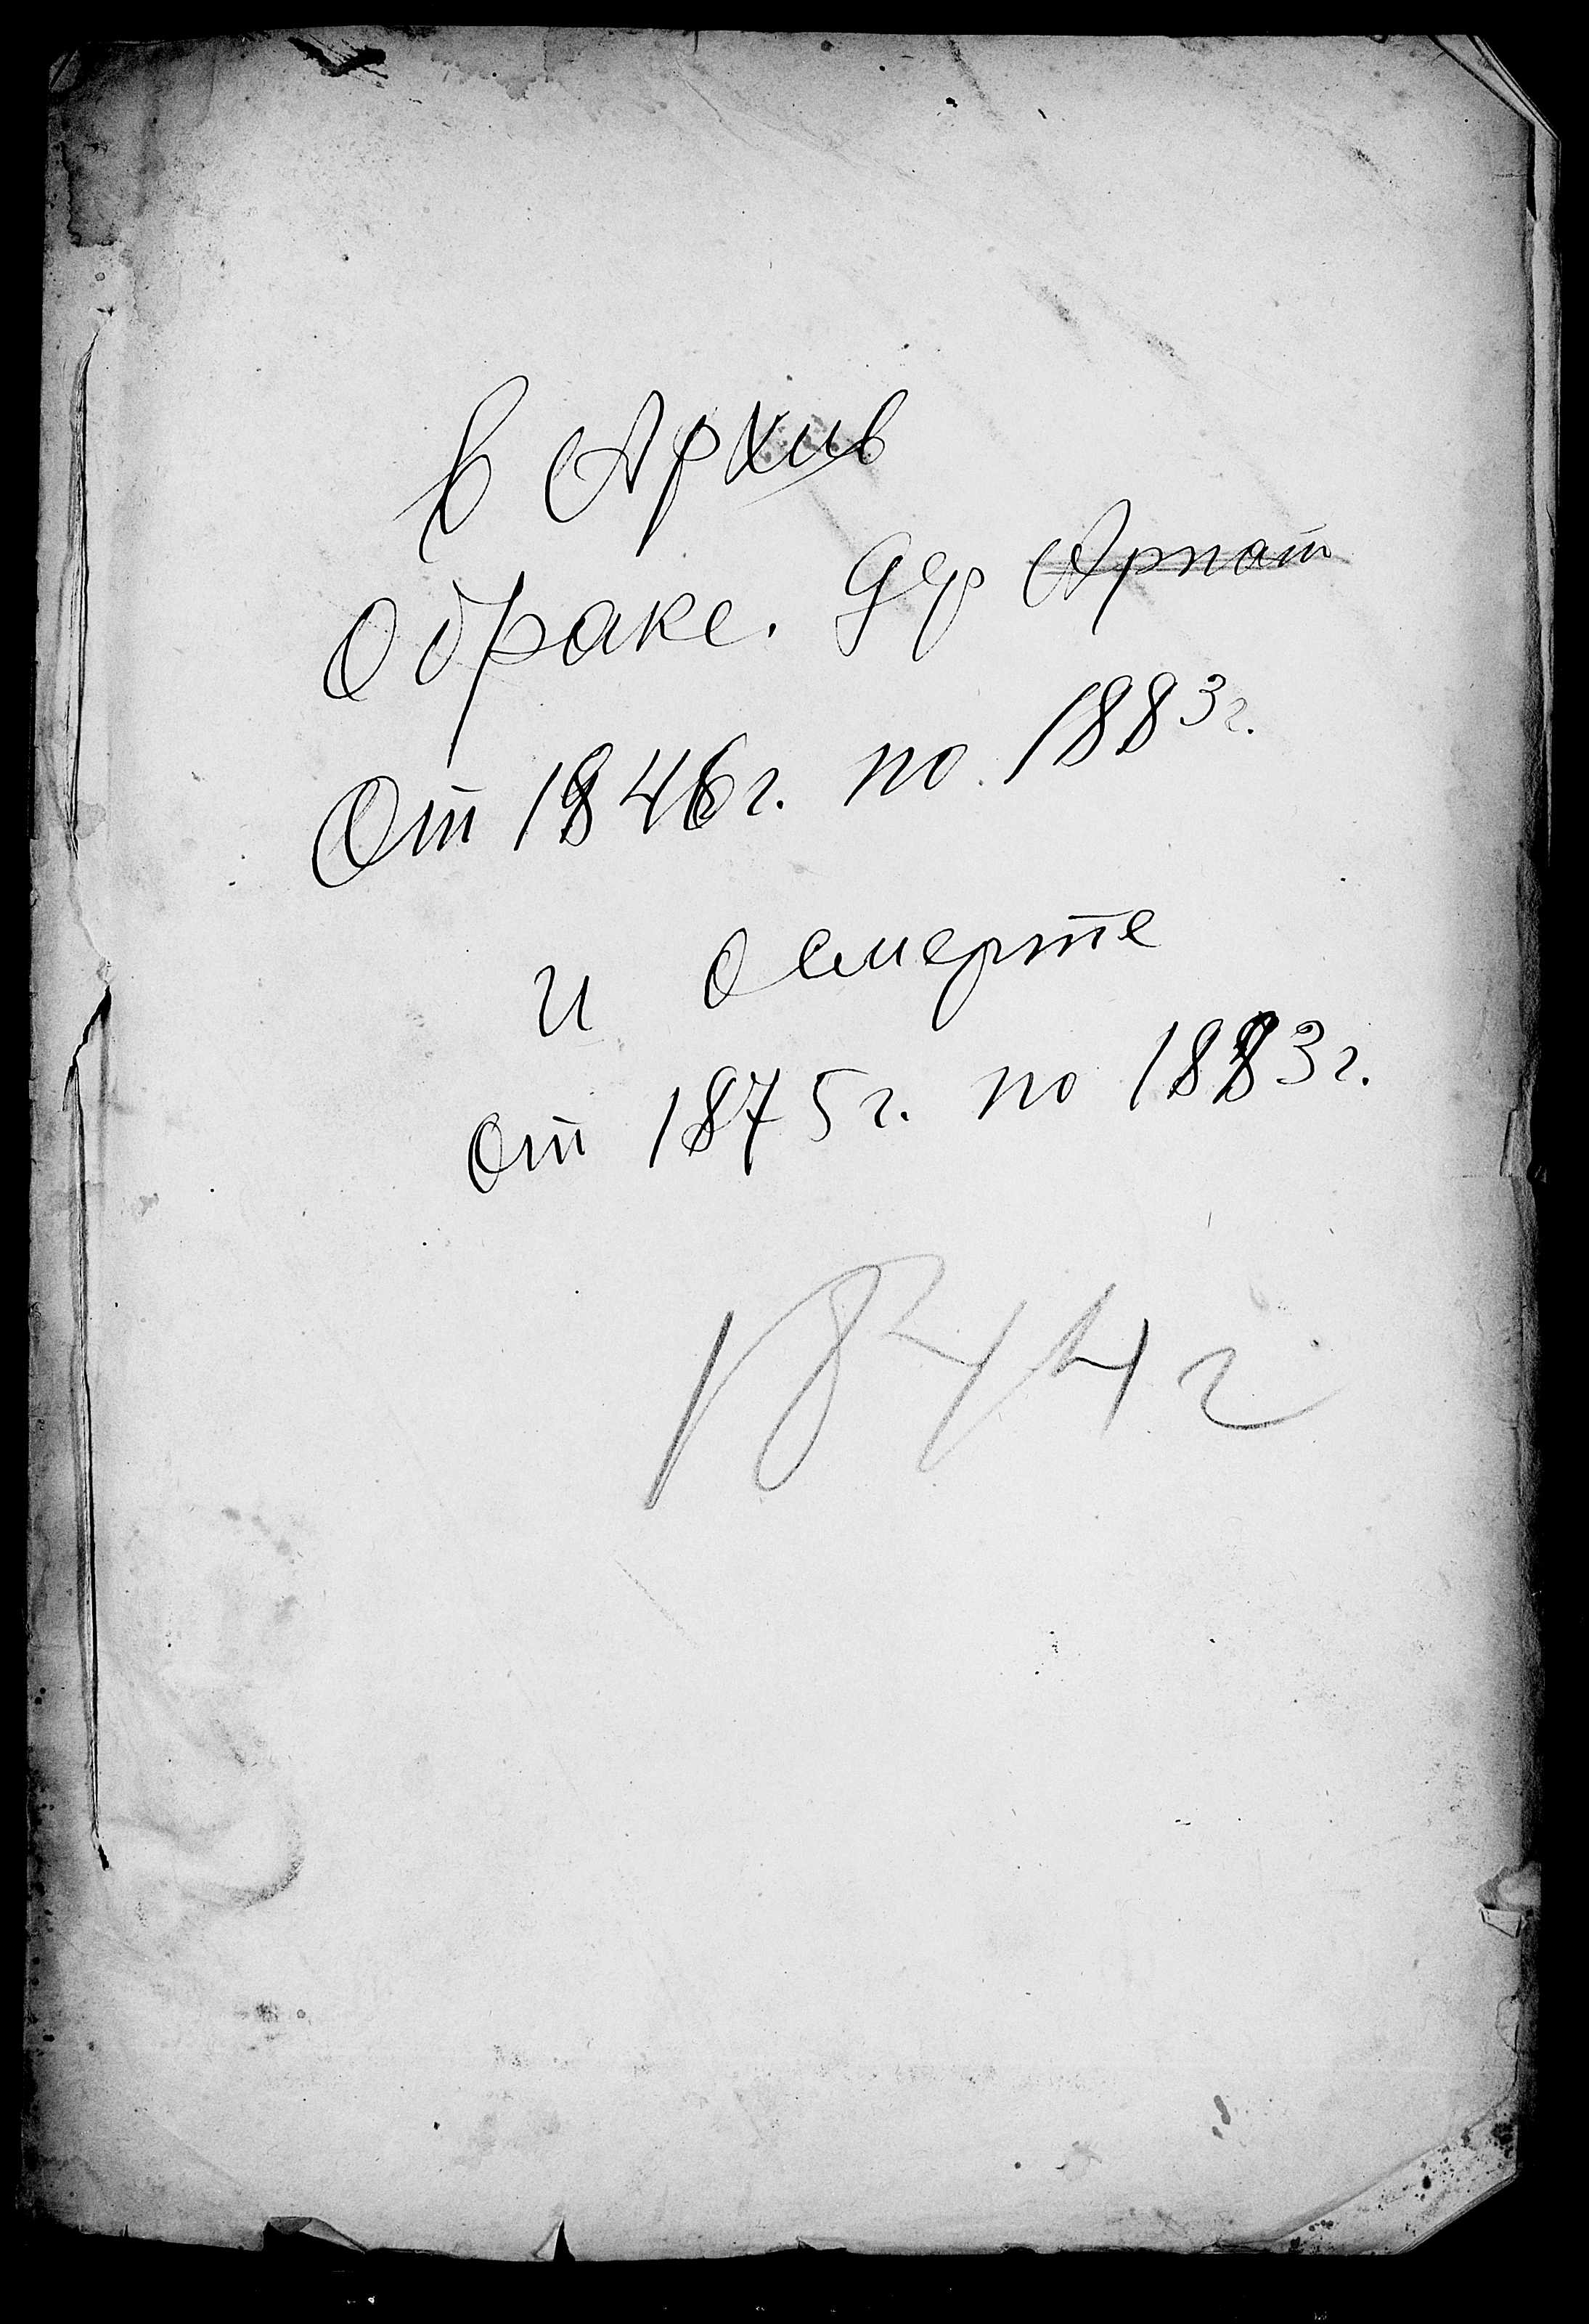 в Архив
О браке. дер Арпат
От 1846г. по 1883г.
и О смерте
От 1875г. по 1883г.
1844г